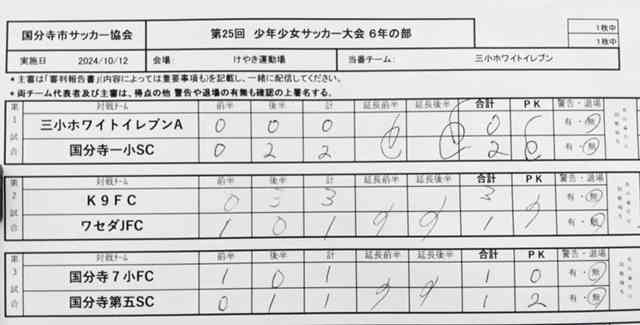 国分寺市サッカー協会 第25回 少年少女サッカー大会 6年の部 1枚中
1枚中
実施日 2024/10/12 会場: けやき運動場 当番チーム: 三小ホワイトイレブン
*主審は「審判報告書」(内容によっては重要事項も)を記載し、一緒に配信してください。
*両チーム代表者及び主審は、得点の他 警告や退場の有無も確認の上署名する。
第1試合 対戦チーム 前半 後半 計 延長前半 延長後半 合計 PK 警告・退場
三小ホワイトイレブンA 0 0 0 0 有・無
国分寺一小SC 0 2 2 2 有・無
第2試合 対戦チーム 前半 後半 計 延長前半 延長後半 合計 PK 警告・退場
K9FC 0 3 3 3 有・無
ワセダJFC 1 0 1 1 有・無
第3試合 対戦チーム 前半 後半 計 延長前半 延長後半 合計 PK 警告・退場
国分寺7小FC 1 0 1 1 0 有・無
国分寺第五SC 0 1 1 1 2 有・無